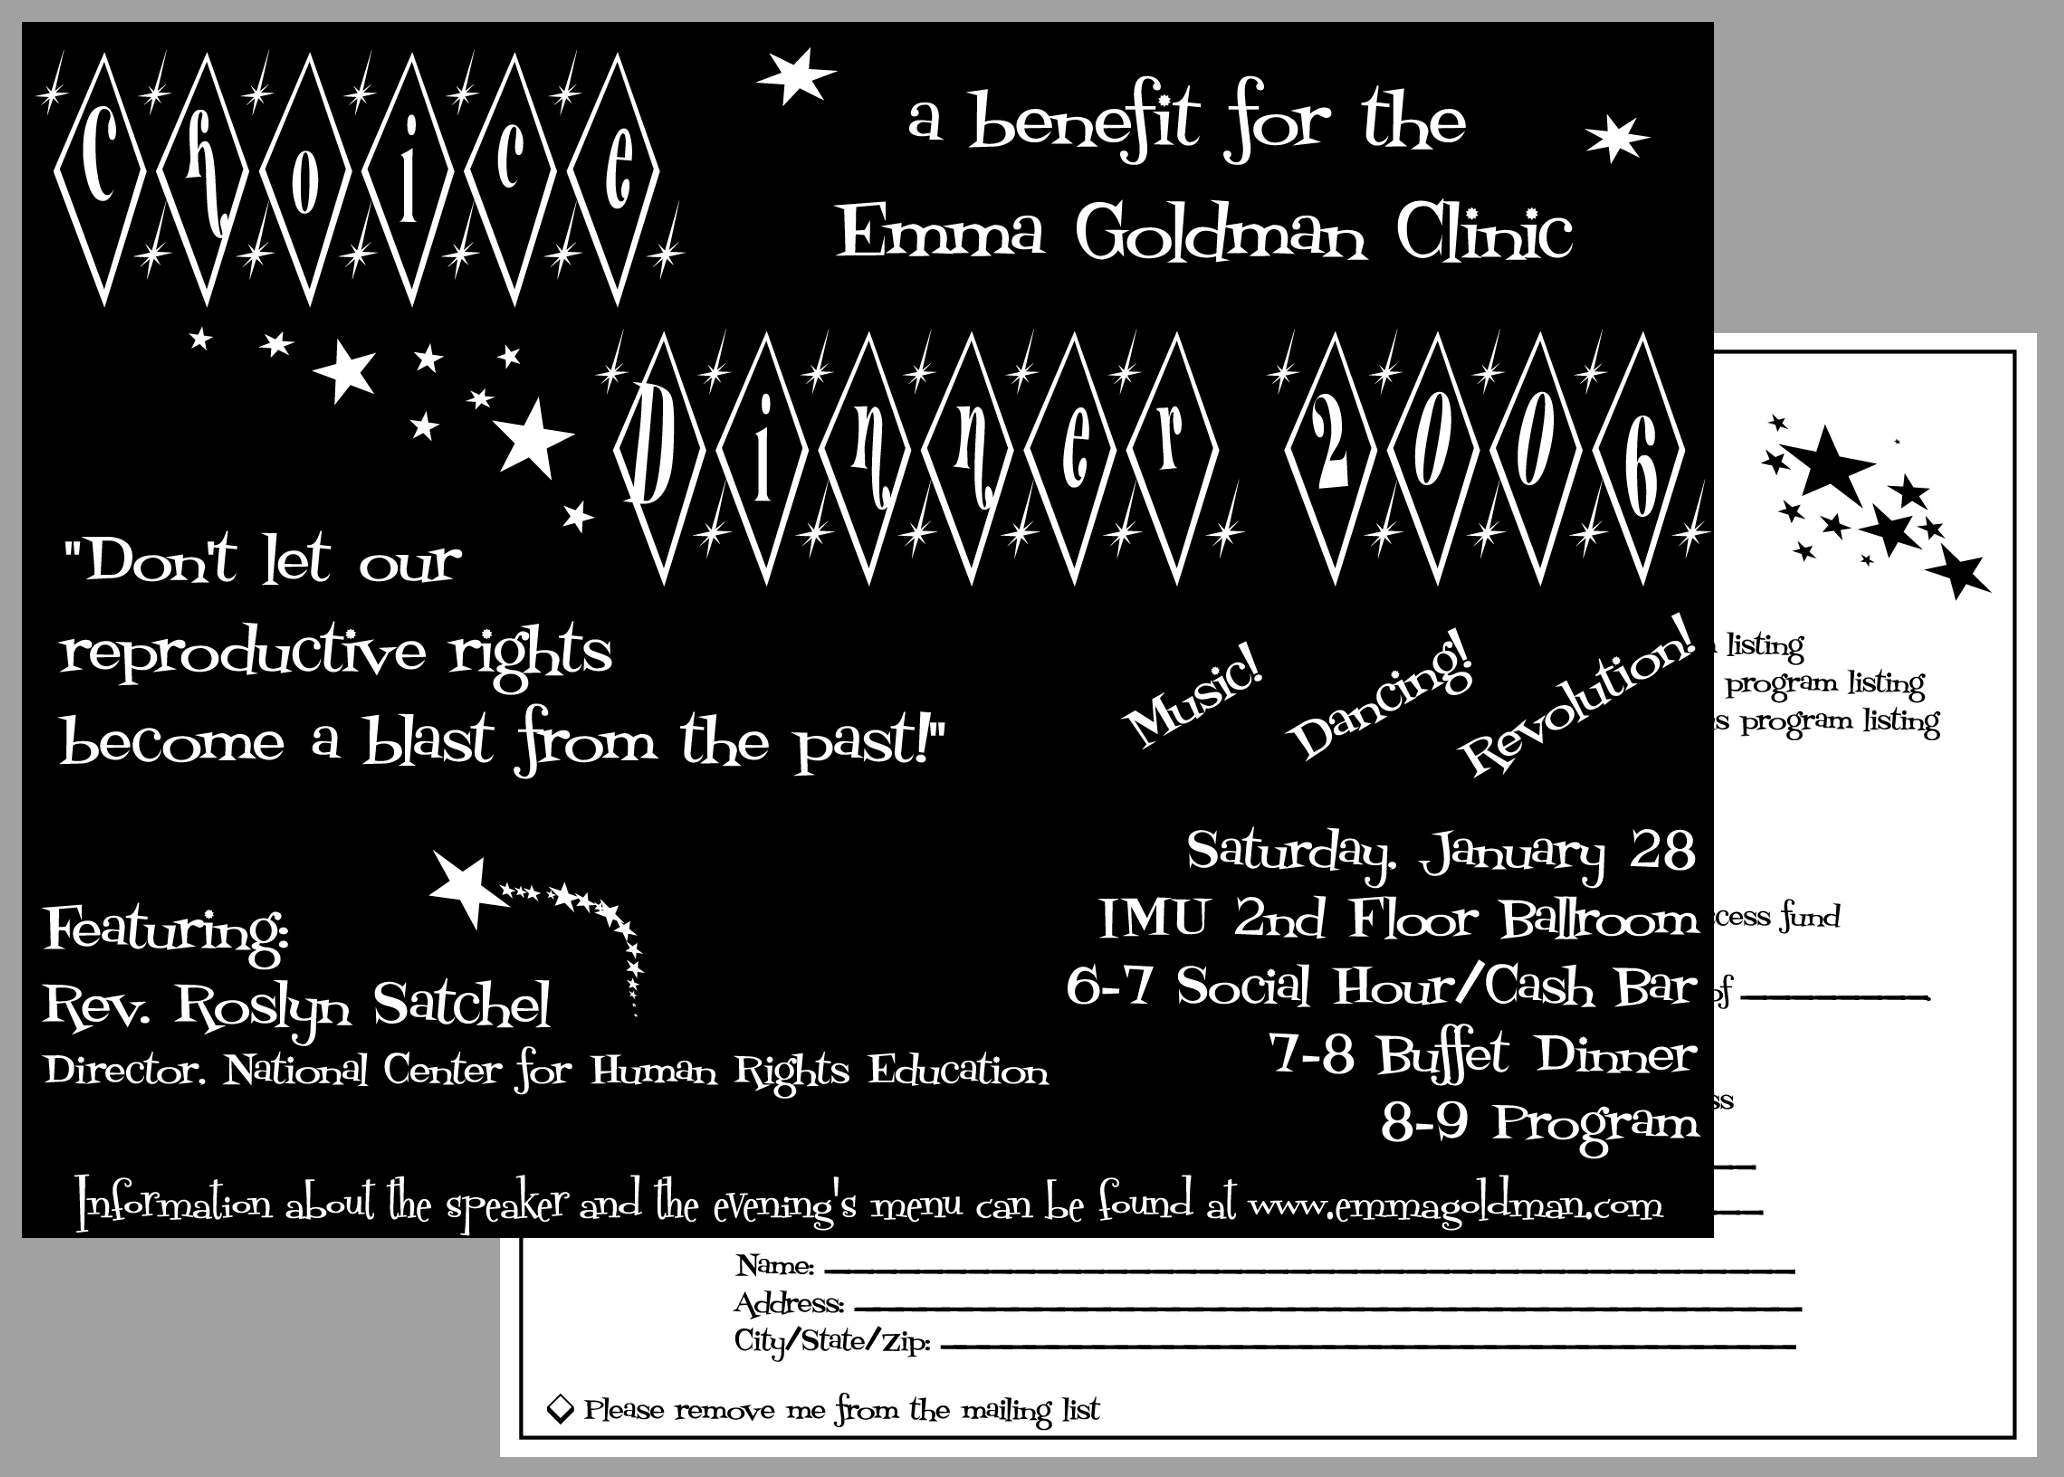 Choice
a benefit for the
Emma Goldman Clinic
Dinner 2006
"Don't let our
reproductive rights
become a blast from the past!"
Music! Dancing! Revolution!
Saturday, January 28
IMU 2nd Floor Ballroom
6-7 Social Hour/Cash Bar
7-8 Buffet Dinner
8-9 Program
Featuring:
Rev. Roslyn Satchel
Director, National Center for Human Rights Education
Information about the speaker and the evening's menu can be found at www.emmagoldman.com
listing
program listing
program listing
fund
Name:
Address:
City/State/Zip:
Please remove me from the mailing list